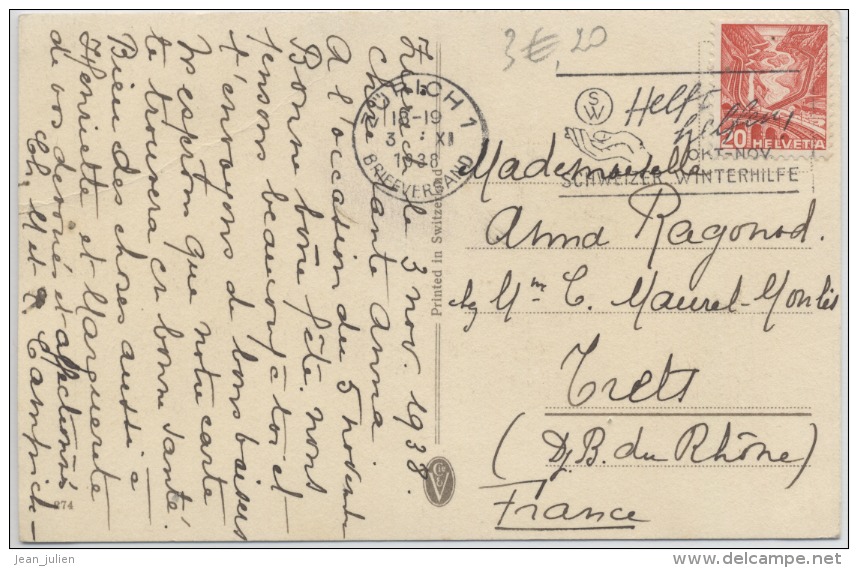 Zurich le 3 nov. 1938.
Chère Tante Anna
A l'occasion du 5 novembre
Bonne bonne fête. nous
pensons beaucoup à toi et
t'envoyons de bons baisers
Ns espérons que notre carte
te trouvera en bonne santé.
Bien des choses aussi à
Henriette et Marguerite
de vos dévoués et affectionnés
Ch, M et R. Campich-
274
Printed in Switzerland
3€,20
ZÜRICH 1
18-19
3 XI
1938
BRIEFVERSAND
SW
Helft
helfen!
OKT-NOV
SCHWEIZER WINTERHILFE
20 HELVETIA
Mademoiselle
Anna Ragonod.
chz Mme C. Maurel-Monlis
Trets
(B. du Rhône)
France
jean_julien
delcampe.net